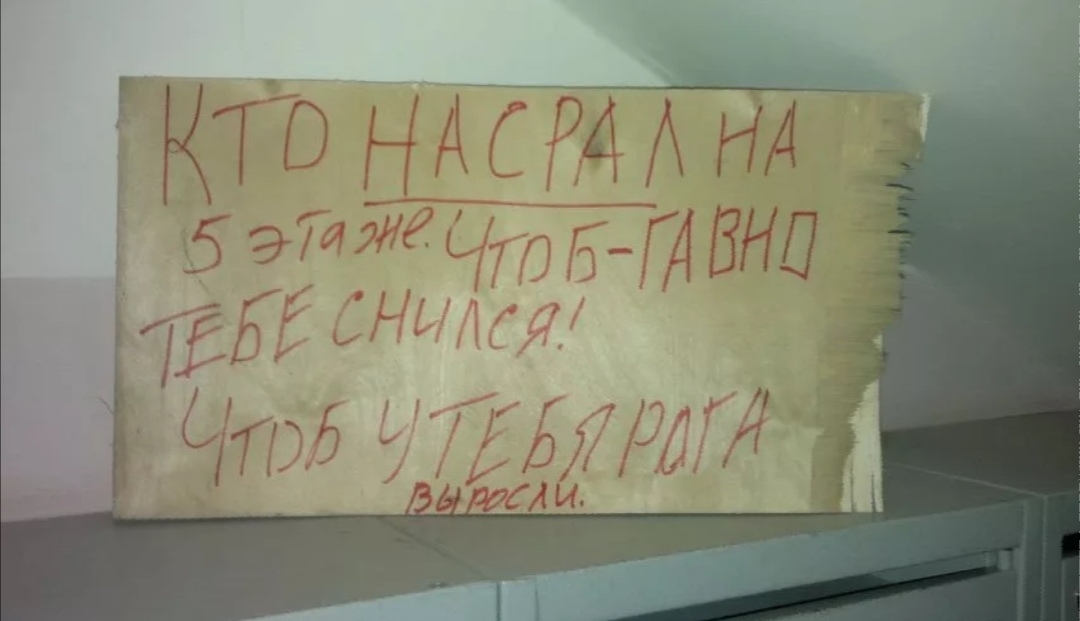 КТО НАСРАЛ НА
5 этаже. ЧТОБ-ГАВНО
ТЕБЕ СНИЛСЯ!
ЧТОБ У ТЕБЯ РОГА
ВЫРОСЛИ.